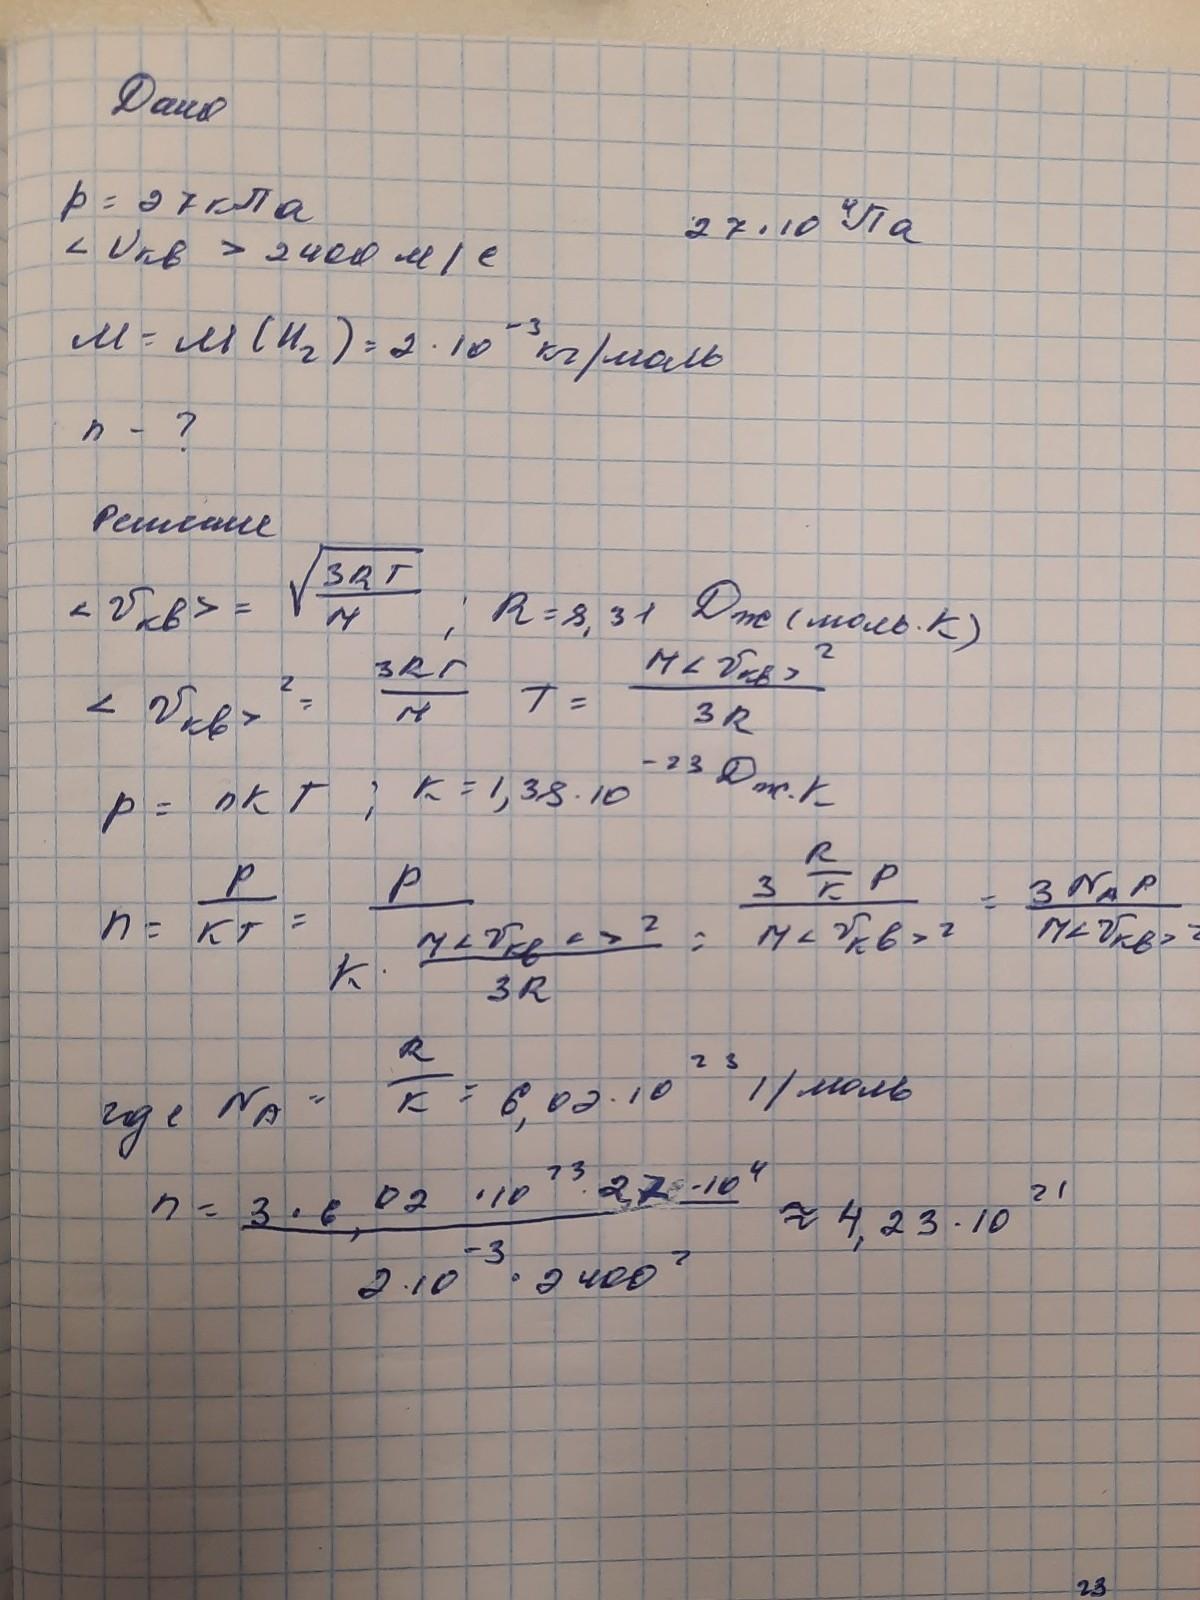 Дано
p = 27 кПа 27·10⁴ Па
<υкв> 2400 м/с
M = M(H₂) = 2·10⁻³ кг/моль
n - ?
Решение
<υкв> = √(3RT/M) ; R = 8,31 Дж(моль·К)
<υкв>² = 3RT/M T = M<υкв>²/3R
p = nKT ; K = 1,38·10⁻²³ Дж·К
n = P/KT = P/(K·M<υкв<>²/3R) = 3 R/K P/M<υкв>² = 3 NA P/M<υкв>²
где NA = R/K = 6,02·10²³ 1/моль
n = 3·6,02·10²³·2,7·10⁴/2·10⁻³·2400² ≈ 4,23·10²¹
23